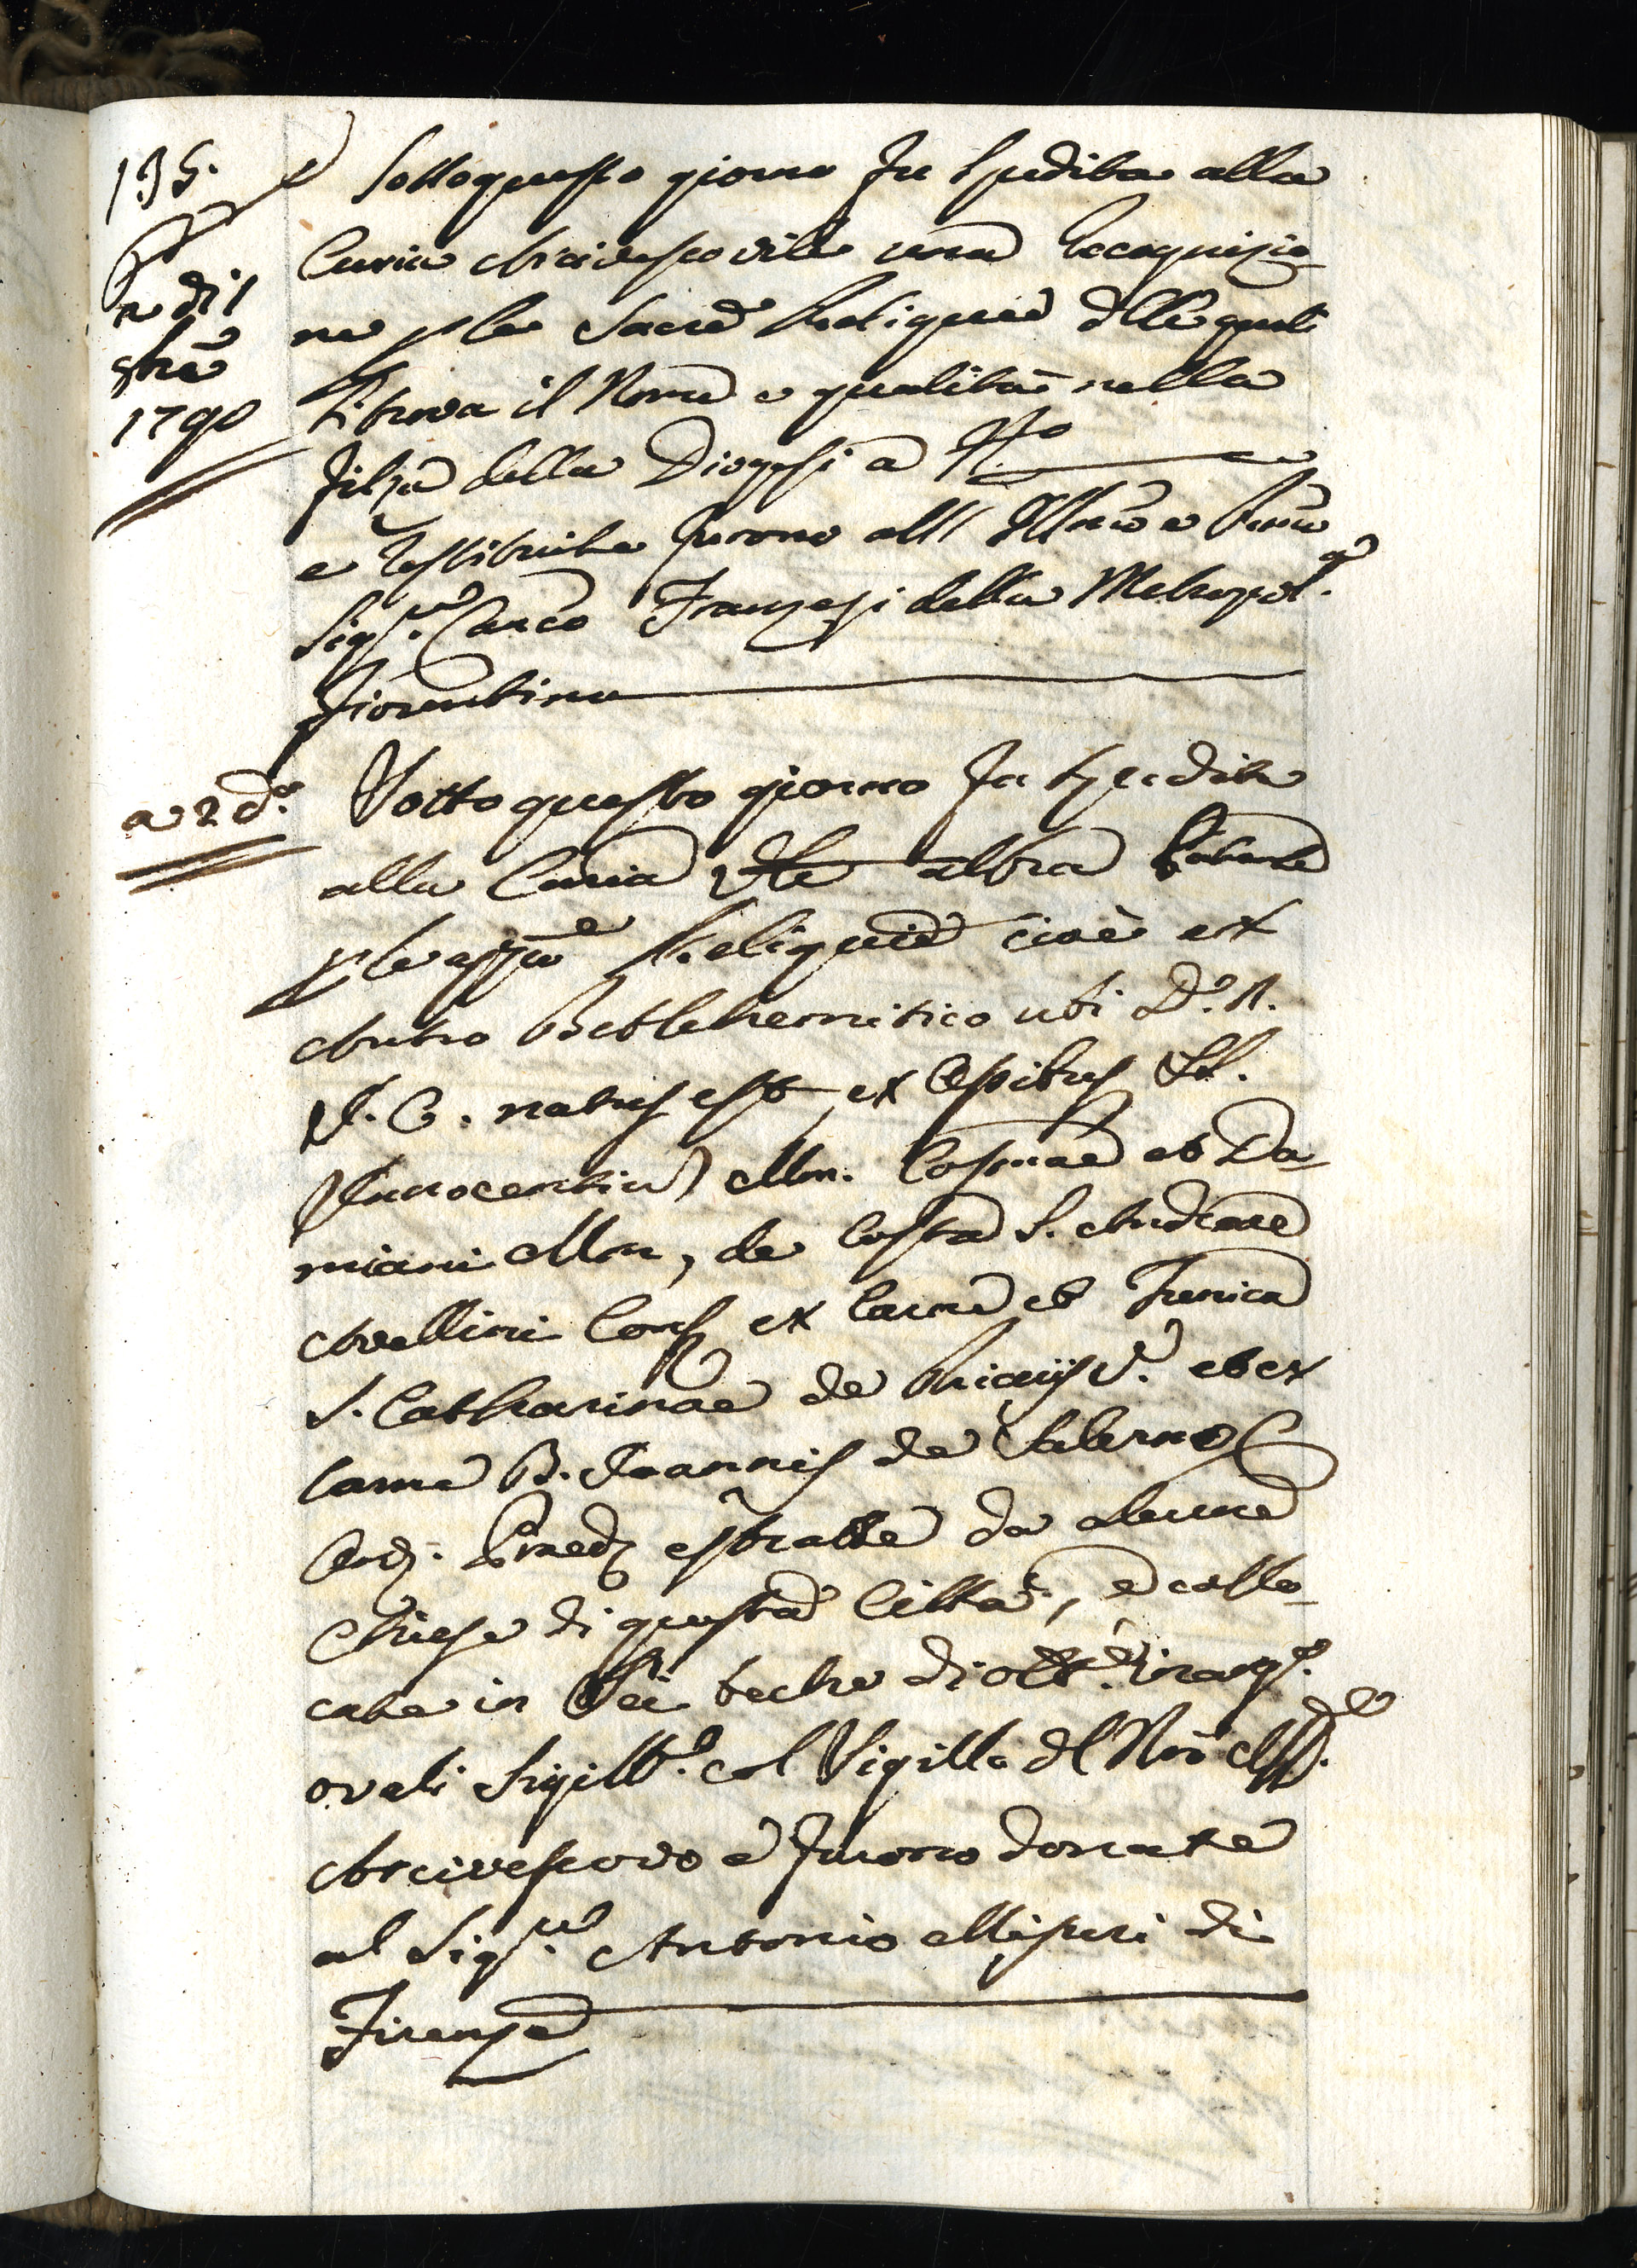 135.
a di 1
9bre
1790
Sotto questo giorno fu spedita alla
Curia Arcivescovile una Recognizio-
ne p le Sacre Reliquie dlle quali
si trova il Nome e qualità nella
filza della Diogesi a N.o
e restituite furono all Illmo e Rmo
Sigre. Canco Franzesi della Metropol.
Fiorentina
a 2 do.
Sotto questo giorno fu spedita
alla Curia altra Patente
p le appie Reliquie cioè ex
Antro Betlehemitico ubi D. N.
J. C. natus est, ex Ossibus SS.
Innocentiu Mm. Cosmae et Da
miani Mm, de Costa S. Andreae
Avellini Conf ex Carne et Tunica
S. Catharinae de Ricciis V. et ex
carne B. Joannis de Salerno C
Ord. Praed estratte da alcune
Chiese di questa Città, e collo-
cate in Sei teche di ott. inarg.
ovali Sigillte. col Sigillo dl Nro
Arcivescovo e furono donate
al Sigre. Antonio Misuri di
Firenze